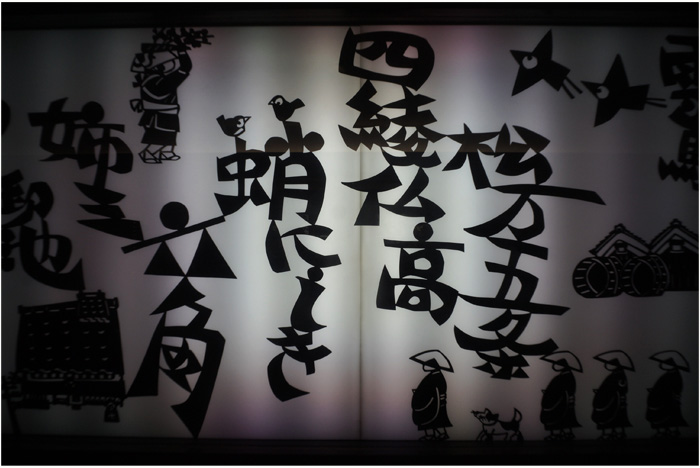 松万五条
四綾仏高
蛸にしき
六角
姉三
御池